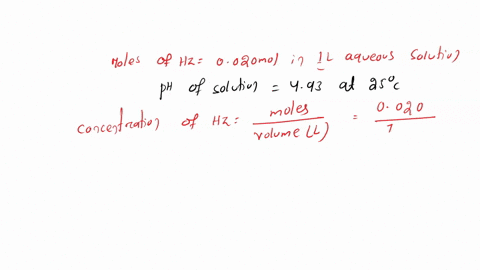 Moles of HZ = 0.020mol in 1L aqueous solution
pH of solution = 4.93 at 25°C
Concentration of HZ = moles / volume (L) = 0.020 / 1